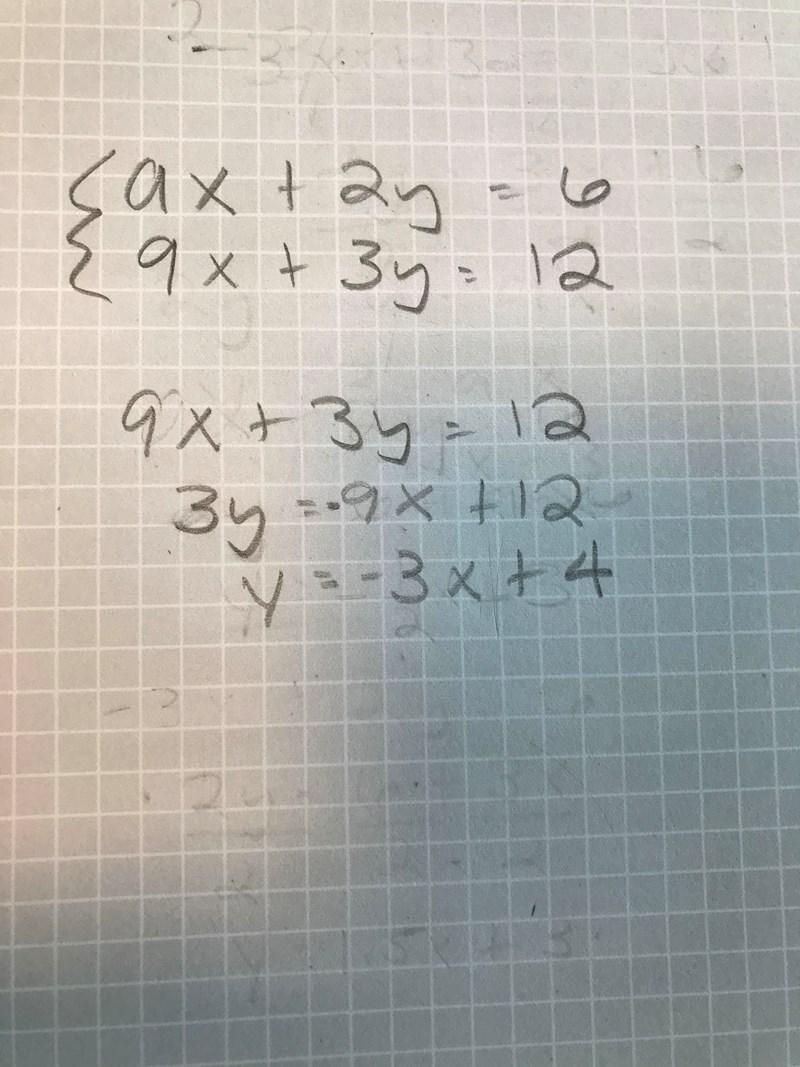 { ax + 2y = 6
{ 9x + 3y = 12
9x + 3y = 12
3y = -9x + 12
y = -3x + 4